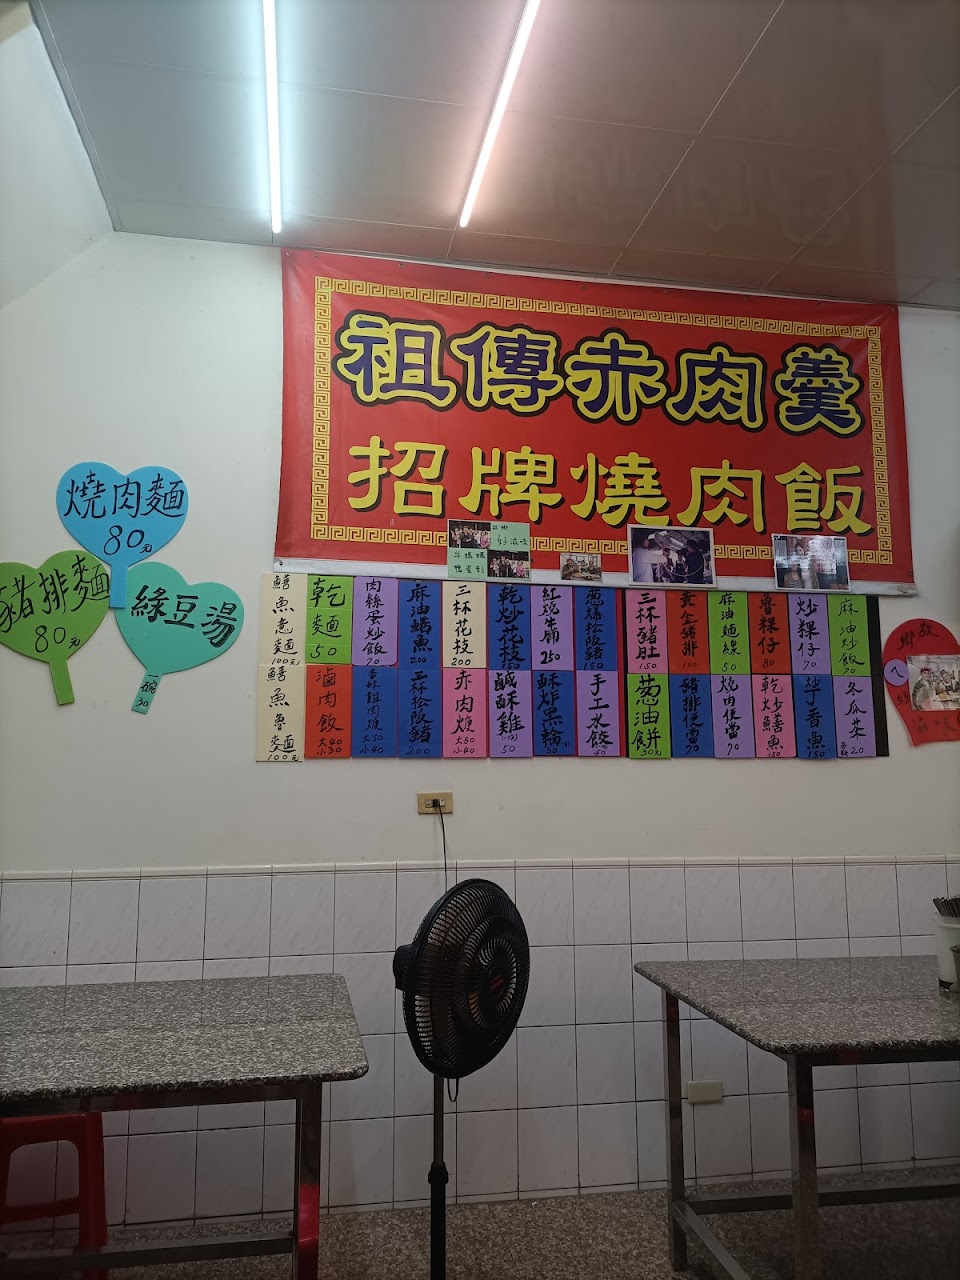 祖傳赤肉羹
招牌燒肉飯
燒肉麵
80元
豬排麵
80元
綠豆湯
一碗
30
故鄉
好滋味
鱔魚意麵
100元
乾麵
50
肉絲蛋炒飯
70
麻油鱔魚
200
三杯花枝
200
乾炒花枝
150
紅燒牛腩
250
蔥爆松阪豬
150
三杯豬肚
150
黃金豬排
100
麻油麵線
50
魯粿仔
80
炒粿仔
70
麻油炒飯
70
鱔魚魯麵
100元
滷肉飯
大40
小30
香菇雞肉焿
大50
小40
三杯松阪豬
200
赤肉焿
大50
小40
鹹酥雞
50
酥炸黑輪
30
手工水餃
50
葱油餅
30元
豬排便當
70
燒肉便當
70
乾炒鱔魚
150
炒丁香魚
150
冬瓜茶
20
故鄉